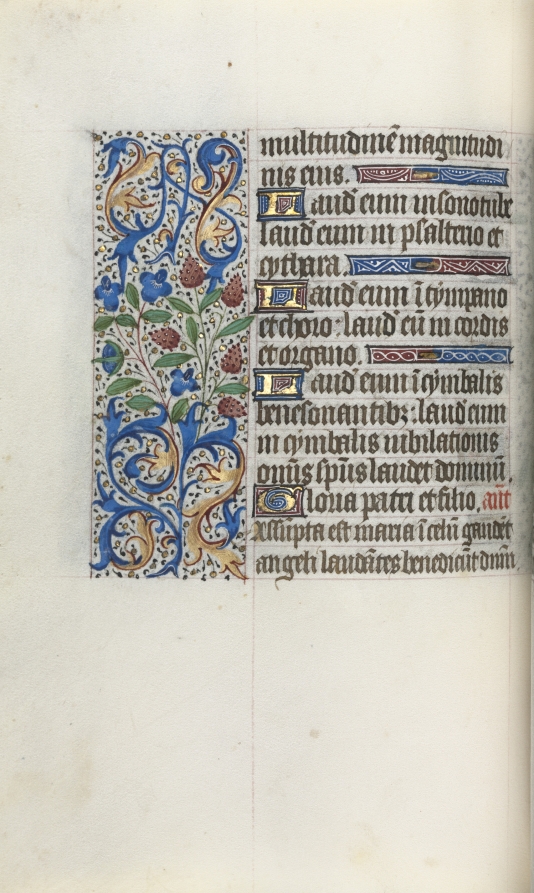 multitudinē magnitudi
nis eius.
Laud̄ eum in sono tube
laud̄ eum in psalterio et
cythara.
Laud̄ eum ī tympano
et choro: laud̄ eū in cordis
et organo.
Laud̄ eum ī cymbalis
benesonantibꝫ: laud̄ eum
in cymbalis iubilationis
omīs sp̄us laudet dominū.
Gloria patri et filio. añt
Assūpta est maria ī celū gaudēt
angeli laudātes benedicūt dnm̄